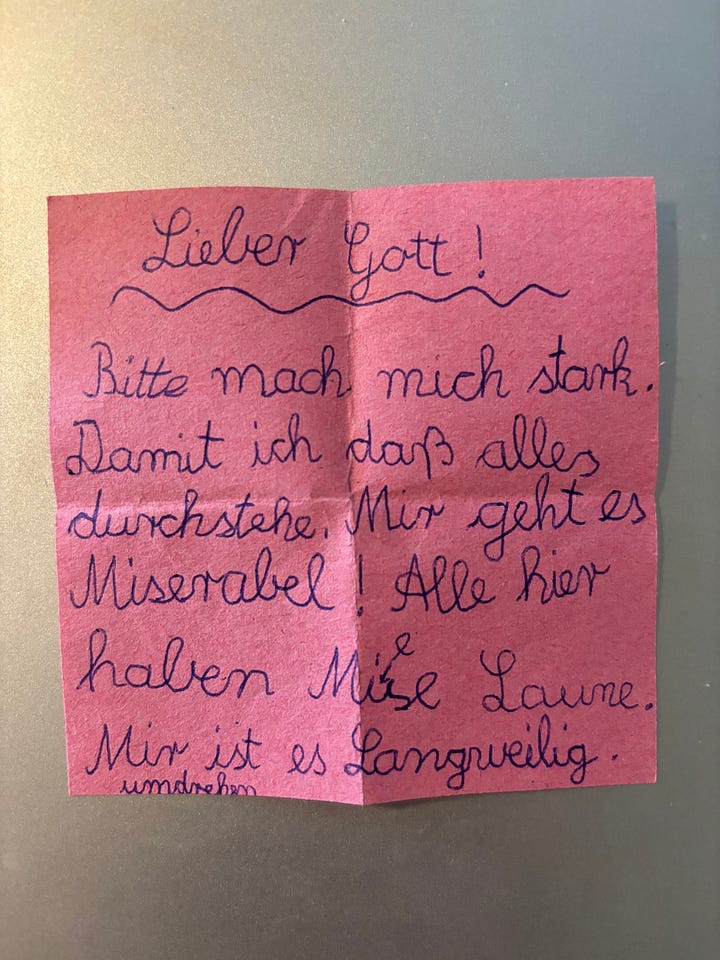 Lieber Gott!
Bitte mach mich stark.
Damit ich daß alles
durchstehe. Mir geht es
Miserabel! Alle hier
haben Miese Laune.
Mir ist es Langweilig.
umdrehen